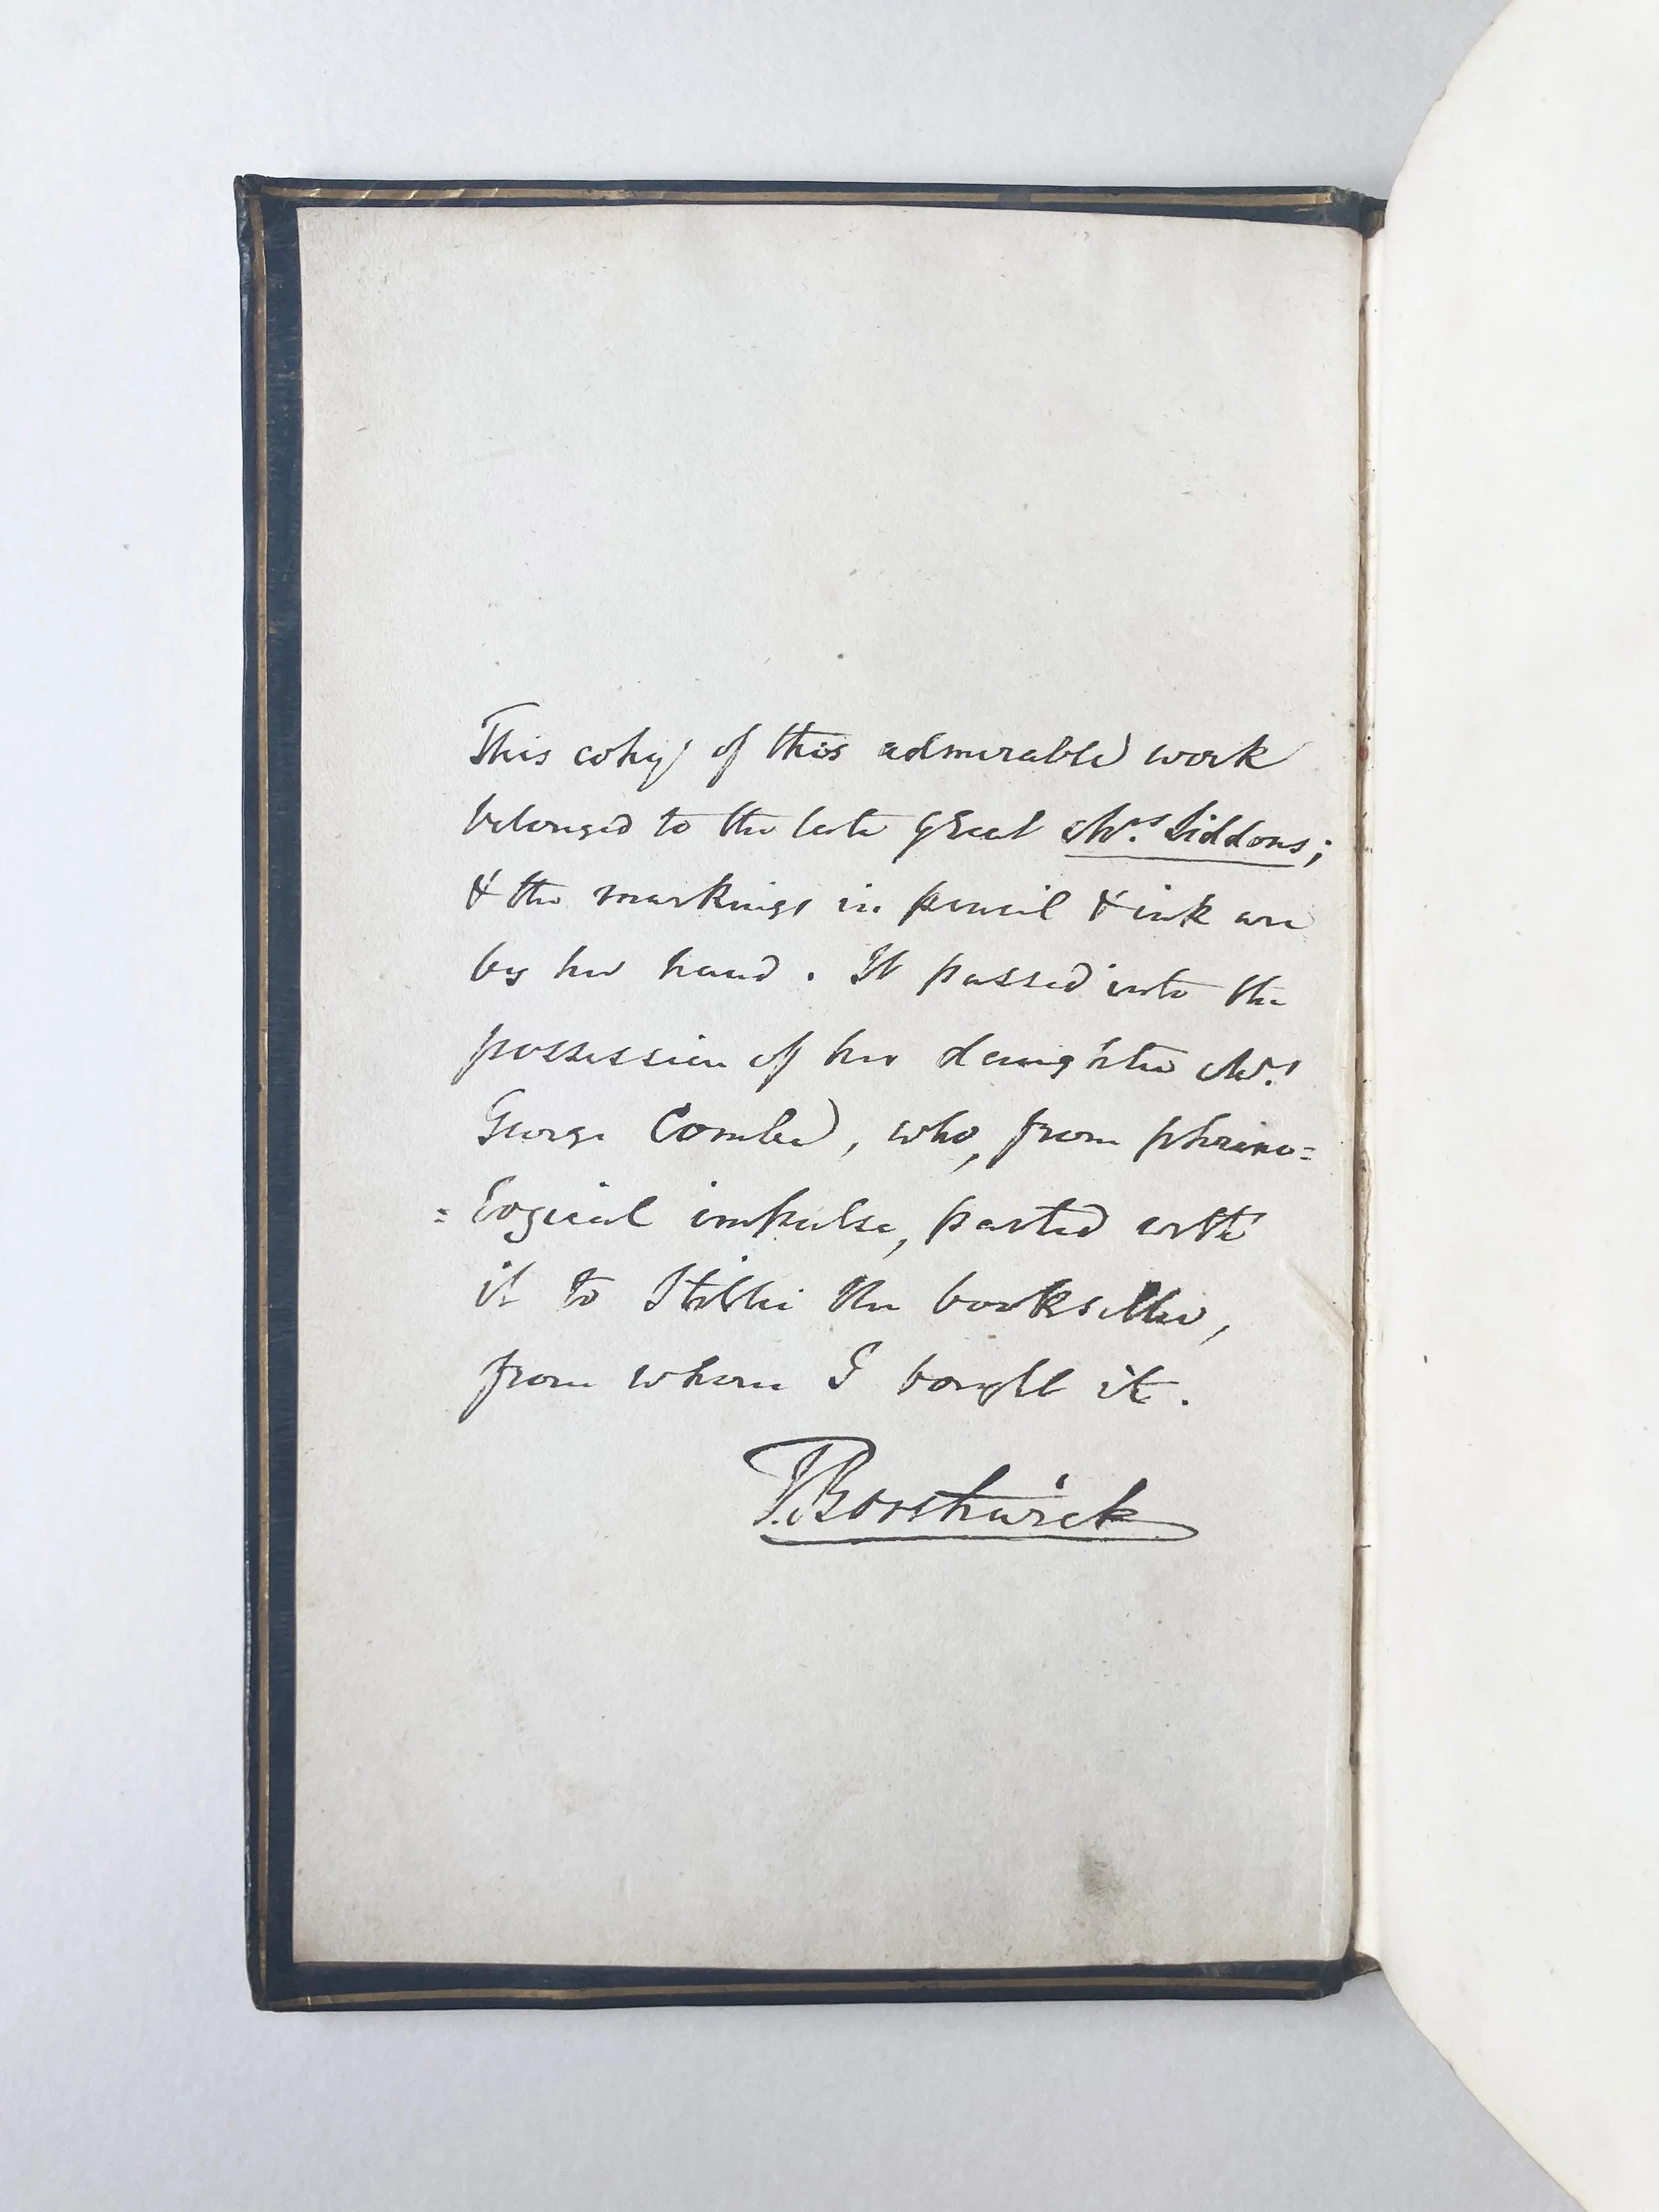 This copy of this admirable work
belonged to the late great Mrs. Siddons;
& the markings in pencil & ink are
by her hand. It passed into the
possession of her daughter Mrs.
George Combe, who, from phreno=
=logical impulse, parted with
it to Stillie the bookseller,
from whom I bought it.
P. Borthwick